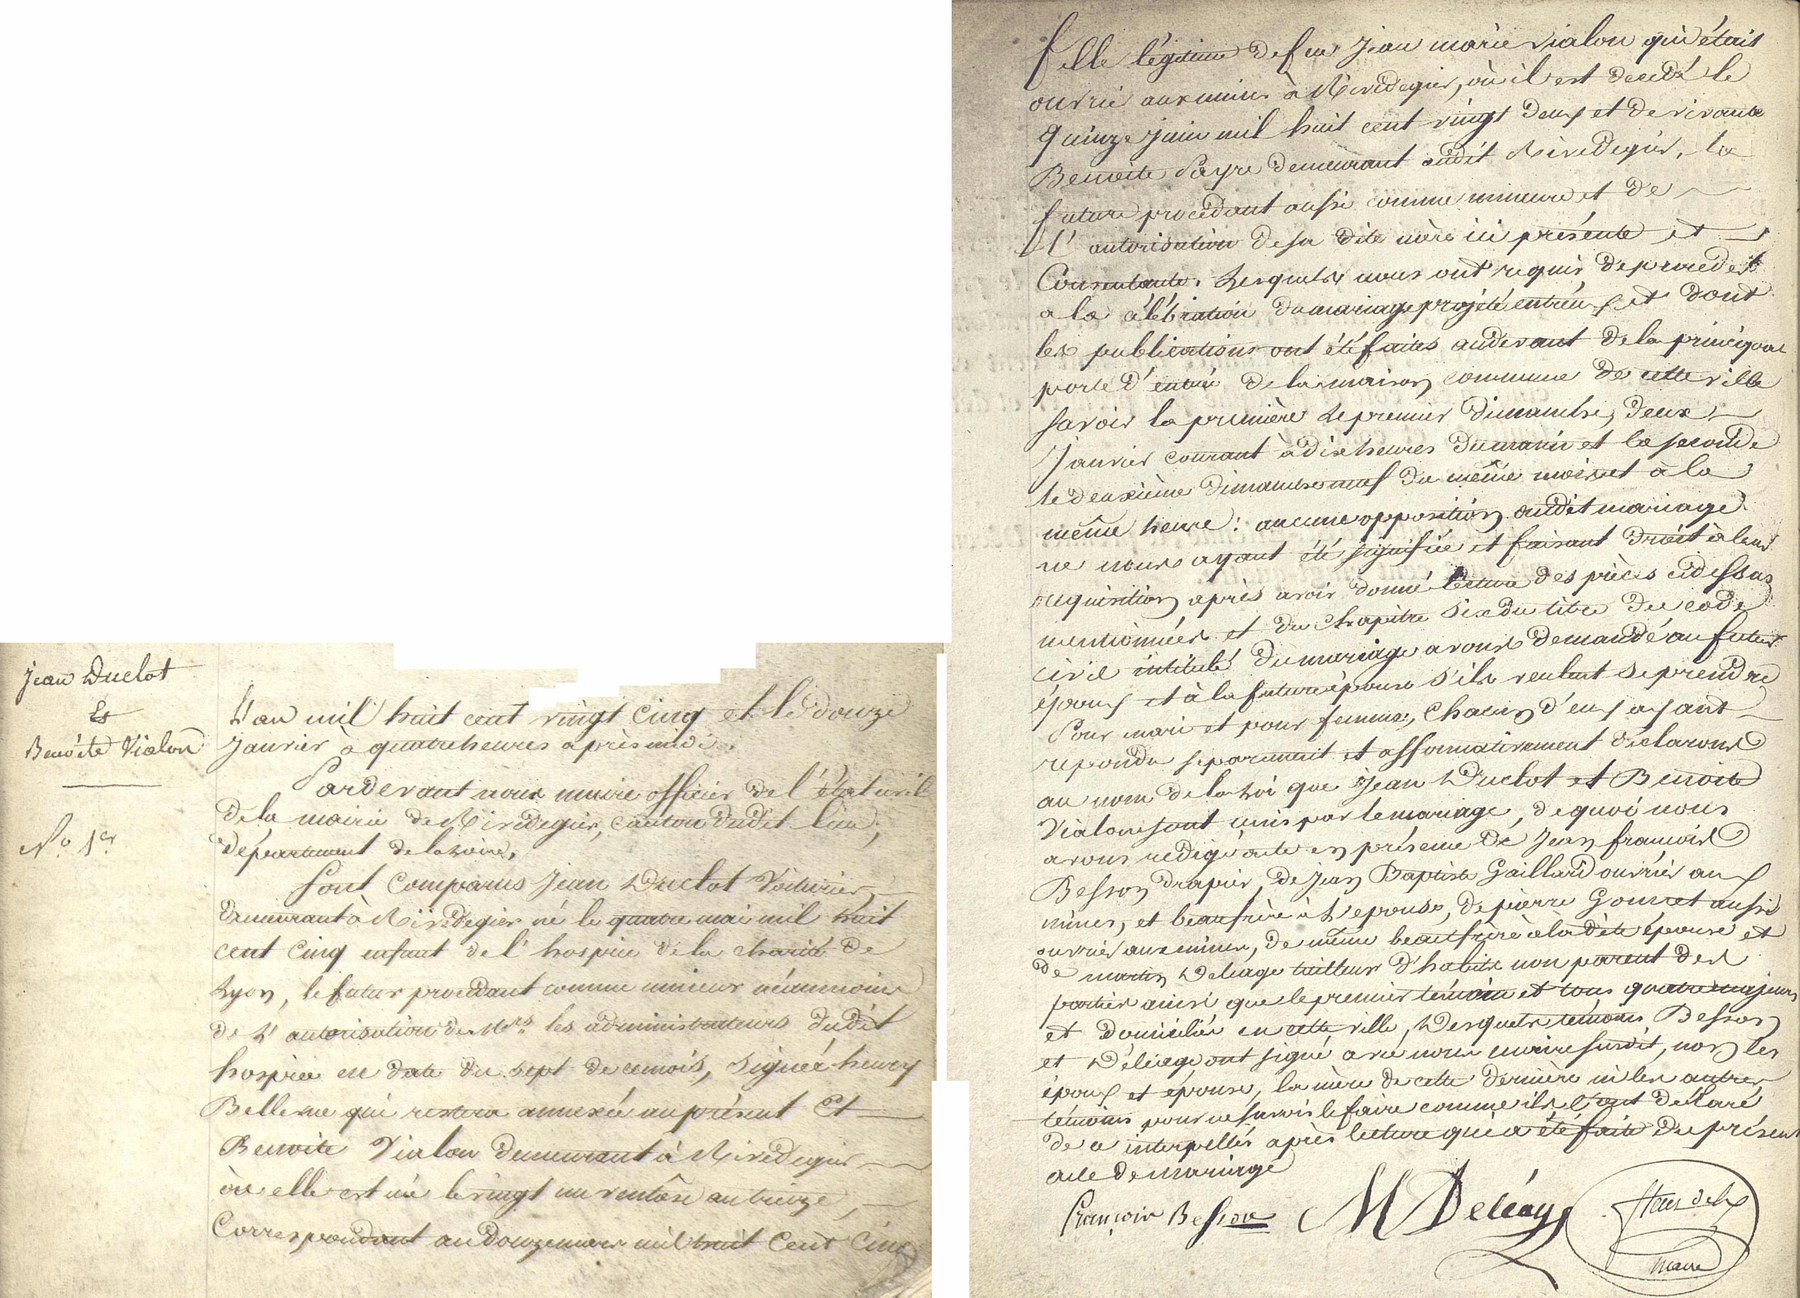 Jean Duclot
&
Benoîte Vialon
N.o 1er
L'an mil huit cent vingt cinq et le douze
Janvier à quatre heures après midi.
Pardevant nous maire officier de l'état civil
de la mairie de Rivedegier, canton dudit lieu,
département de la Loire.
Sont comparus Jean Duclot Voiturier
demeurant à Rivedegier né le quatre mai mil huit
cent cinq enfant de l'hospice de la charité de
Lyon, le futur procédant comme mineur néanmoins
de l'autorisation de Mrs les administrateurs dudit
hospice en date du sept de ce mois, Signée henry
Bellesme qui restera annexée au présent Et
Benoite Vialon demeurant à Rivedegier
où elle est née le vingt un ventôse an treize,
Correspondant au douze mars mil huit cent cinq
fille légitime de feu Jean marie Vialon qui était
ouvrié aux mines à Rivedegier, où il est decedé le
quinze juin mil huit cent vingt deux et de vivante
Benoite Payre demeurant audit Rivedegier, la
future procédant aussi comme mineure et de
l'autorisation de sa dite mère ici présente et
Consentante. Lesquels nous ont requis de proceder
a la célébration du mariage projété entr'eux et dont
les publications ont été faites audevant de la principale
porte d'entrée de la maison commune de cette ville
savoir la première le premier dimanche, deux
Janvier courant à dix heures du matin et la seconde
le deuxième dimanche neuf du même mois et à la
même heure: aucune opposition audit mariage
ne nous ayant été signifiée et faisant droit à leur
requisition après avoir donné lecture des pièces cidessus
mentionnées et du chapitre six du titre du code
civil intitulé du mariage avons demandé au futur
époux et à la future épouse s'ils veulent se prendre
Pour mari et pour femme, chacun d'eux ayant
repondu séparement et affirmativement déclarons
au nom de la Loi que Jean Duclot et Benoite
Vialon sont unis par le mariage, de quoi nous
avons redigé acte en présence de Jean francois
Besson drapier, de Jean Baptiste Gaillard ouvrier aux
mines, et beaufrère à l'epouse, de pierre Gonnet aussi
ouvrier aux mines, de même beaufrère à la dite épouse et
de martin Deléage tailleur d'habits non parent des
parties ainsi que le premier témoin et tous quatre majeurs
et domiciliés en cette ville, Desquels témoins Besson
et Déléage ont signé avec nous maire susdit, non les
époux et epouse, la mère de cette dernière ni les autres
témoins pour ne savoir le faire comme ils l'ont déclaré
de ce interpellés après lecture que a été faite du présent
acte de mariage
françois Besson M Deléage
maire